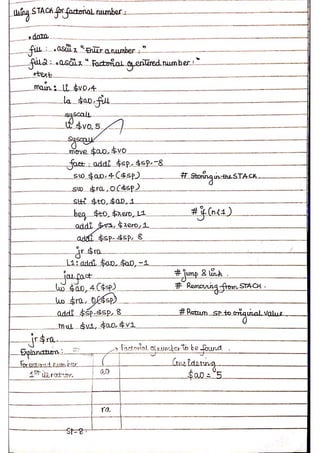 Using STACK for factorial number :
.data
ful : .asciiz "Enter a number : "
ful2 : .asciiz " Factorial of entered number : "
.text
main : li $v0, 4
la $a0, ful
syscall
li $v0, 5
syscall
move $a0, $v0
fact : addi $sp, $sp, -8
sw $a0, 4($sp) # Storing in the STACK
sw $ra, 0($sp)
slti $t0, $a0, 1
beq $t0, $zero, L1 # if (n<1)
addi $v1, $zero, 1
addi $sp, $sp, 8
jr $ra
L1 : addi $a0, $a0, -1
jal fact # Jump & link .
lw $a0, 4($sp) # Removing from STACK .
lw $ra, 0($sp)
addi $sp, $sp, 8 # Return SP to original value .
mul $v1, $a0, $v1
jr $ra .
Explanation :
Factorial of number to be found
1st iteration
Considering
a0
$a0 = 5
ra
SP-8